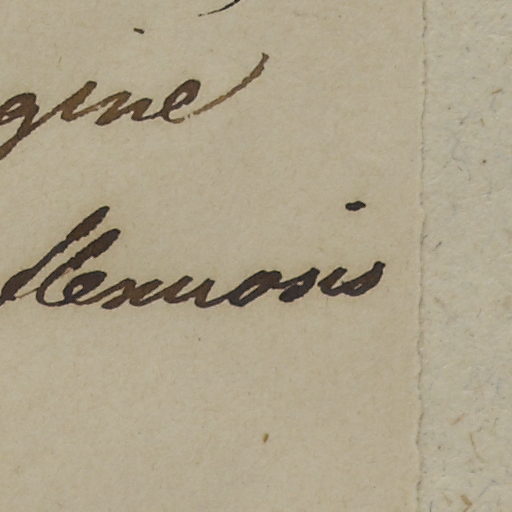 gine
flexuosis